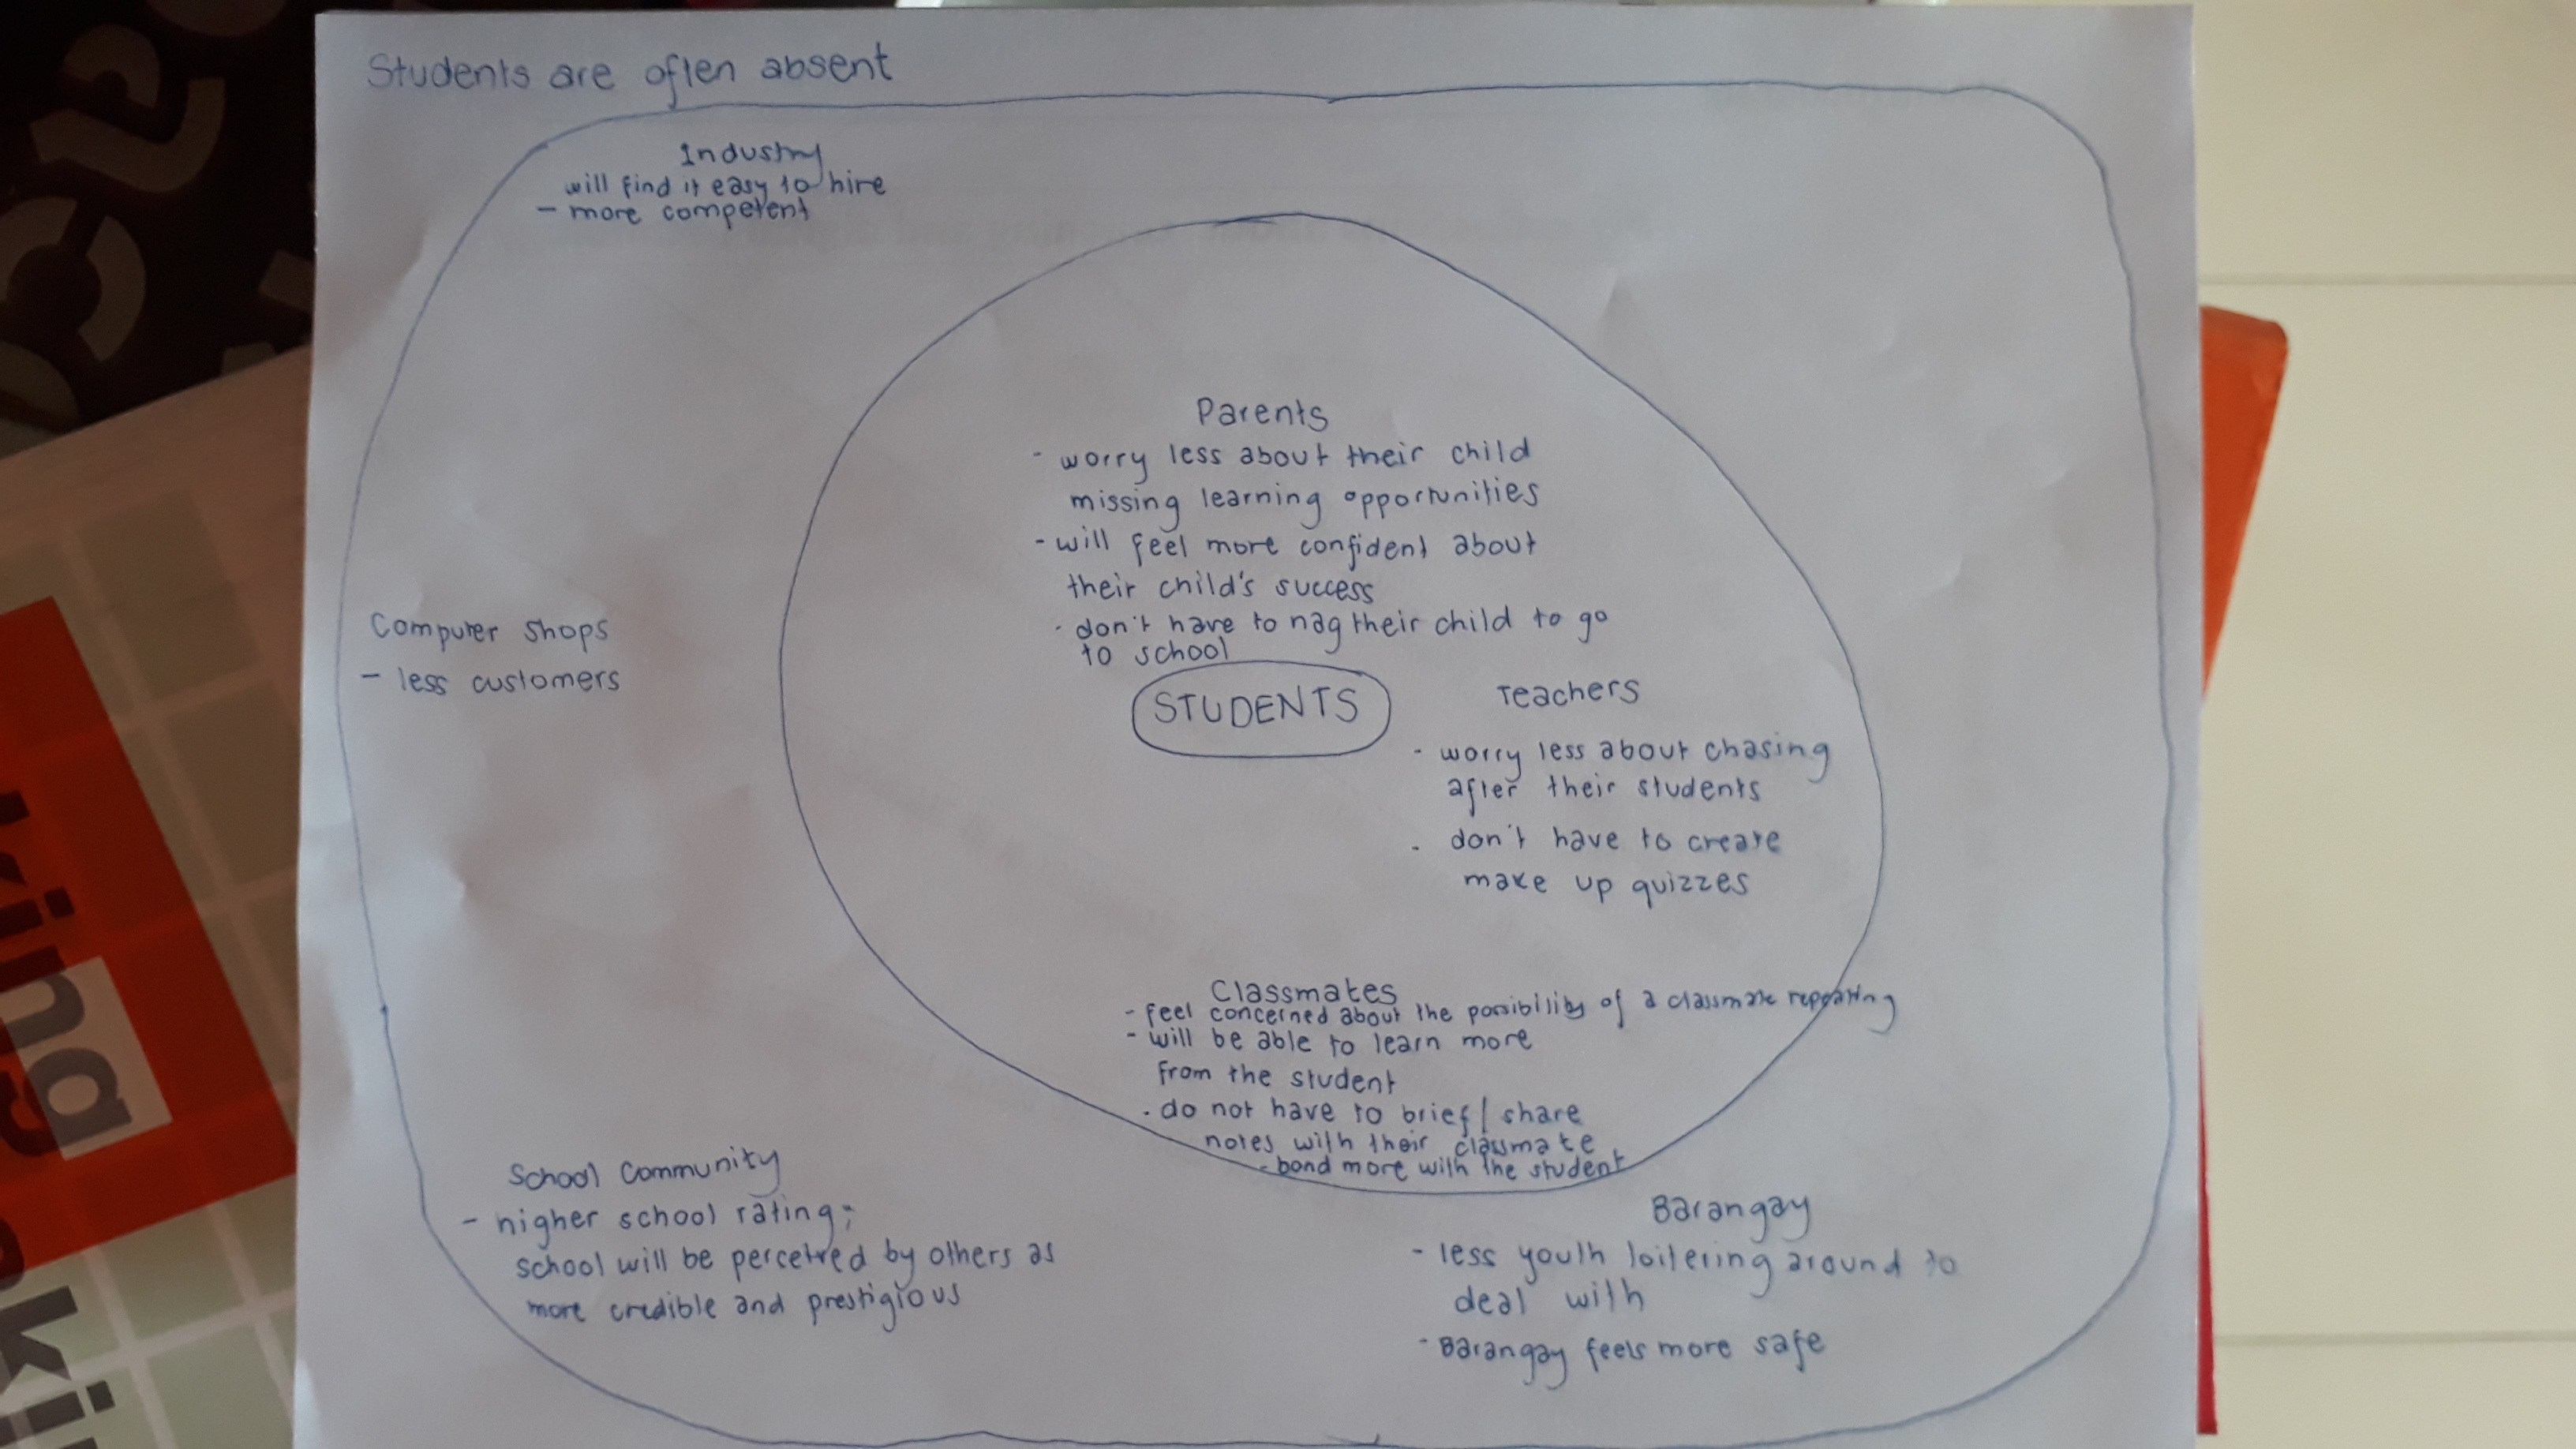 king
Students are often absent
Industry
will find it easy to hire
- more competent
Computer Shops
- less customers
Parents
- worry less about their child
missing learning opportunities
- will feel more confident about
their child's success
- don't have to nag their child to go
to school
STUDENTS
Teachers
- worry less about chasing
after their students
- don't have to create
make up quizzes
Classmates
- feel concerned about the possibility of a classmate repeating
- will be able to learn more
from the student
- do not have to brief / share
notes with their classmate
- bond more with the student
School Community
- higher school rating;
school will be perceived by others as
more credible and prestigious
Barangay
- less youth loitering around to
deal with
- Barangay feels more safe